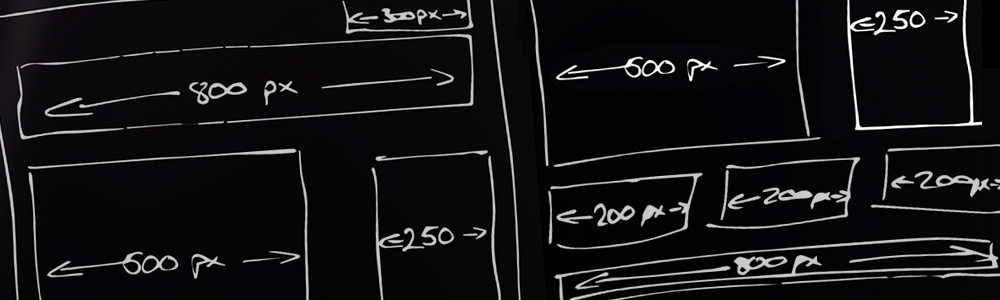 300px
800 px
500 px
250
250
500 px
200 px
200px
200px
800 px